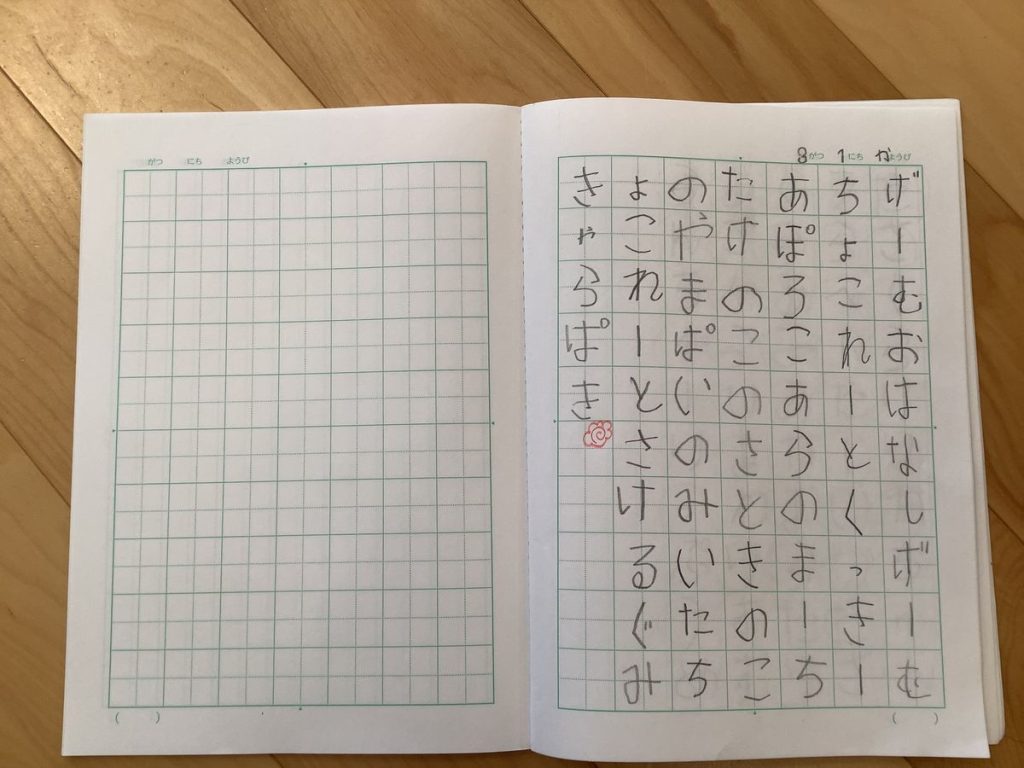 8がつ 1にち かようび
げーむおはなしげーむ
ちょこれーとくっきー
あぽろこあらのまーち
たけのこのさときのこ
のやまぱいのみいたち
ょこれーとさけるぐみ
きゃらぱき
( )
がつ にち ようび
( )